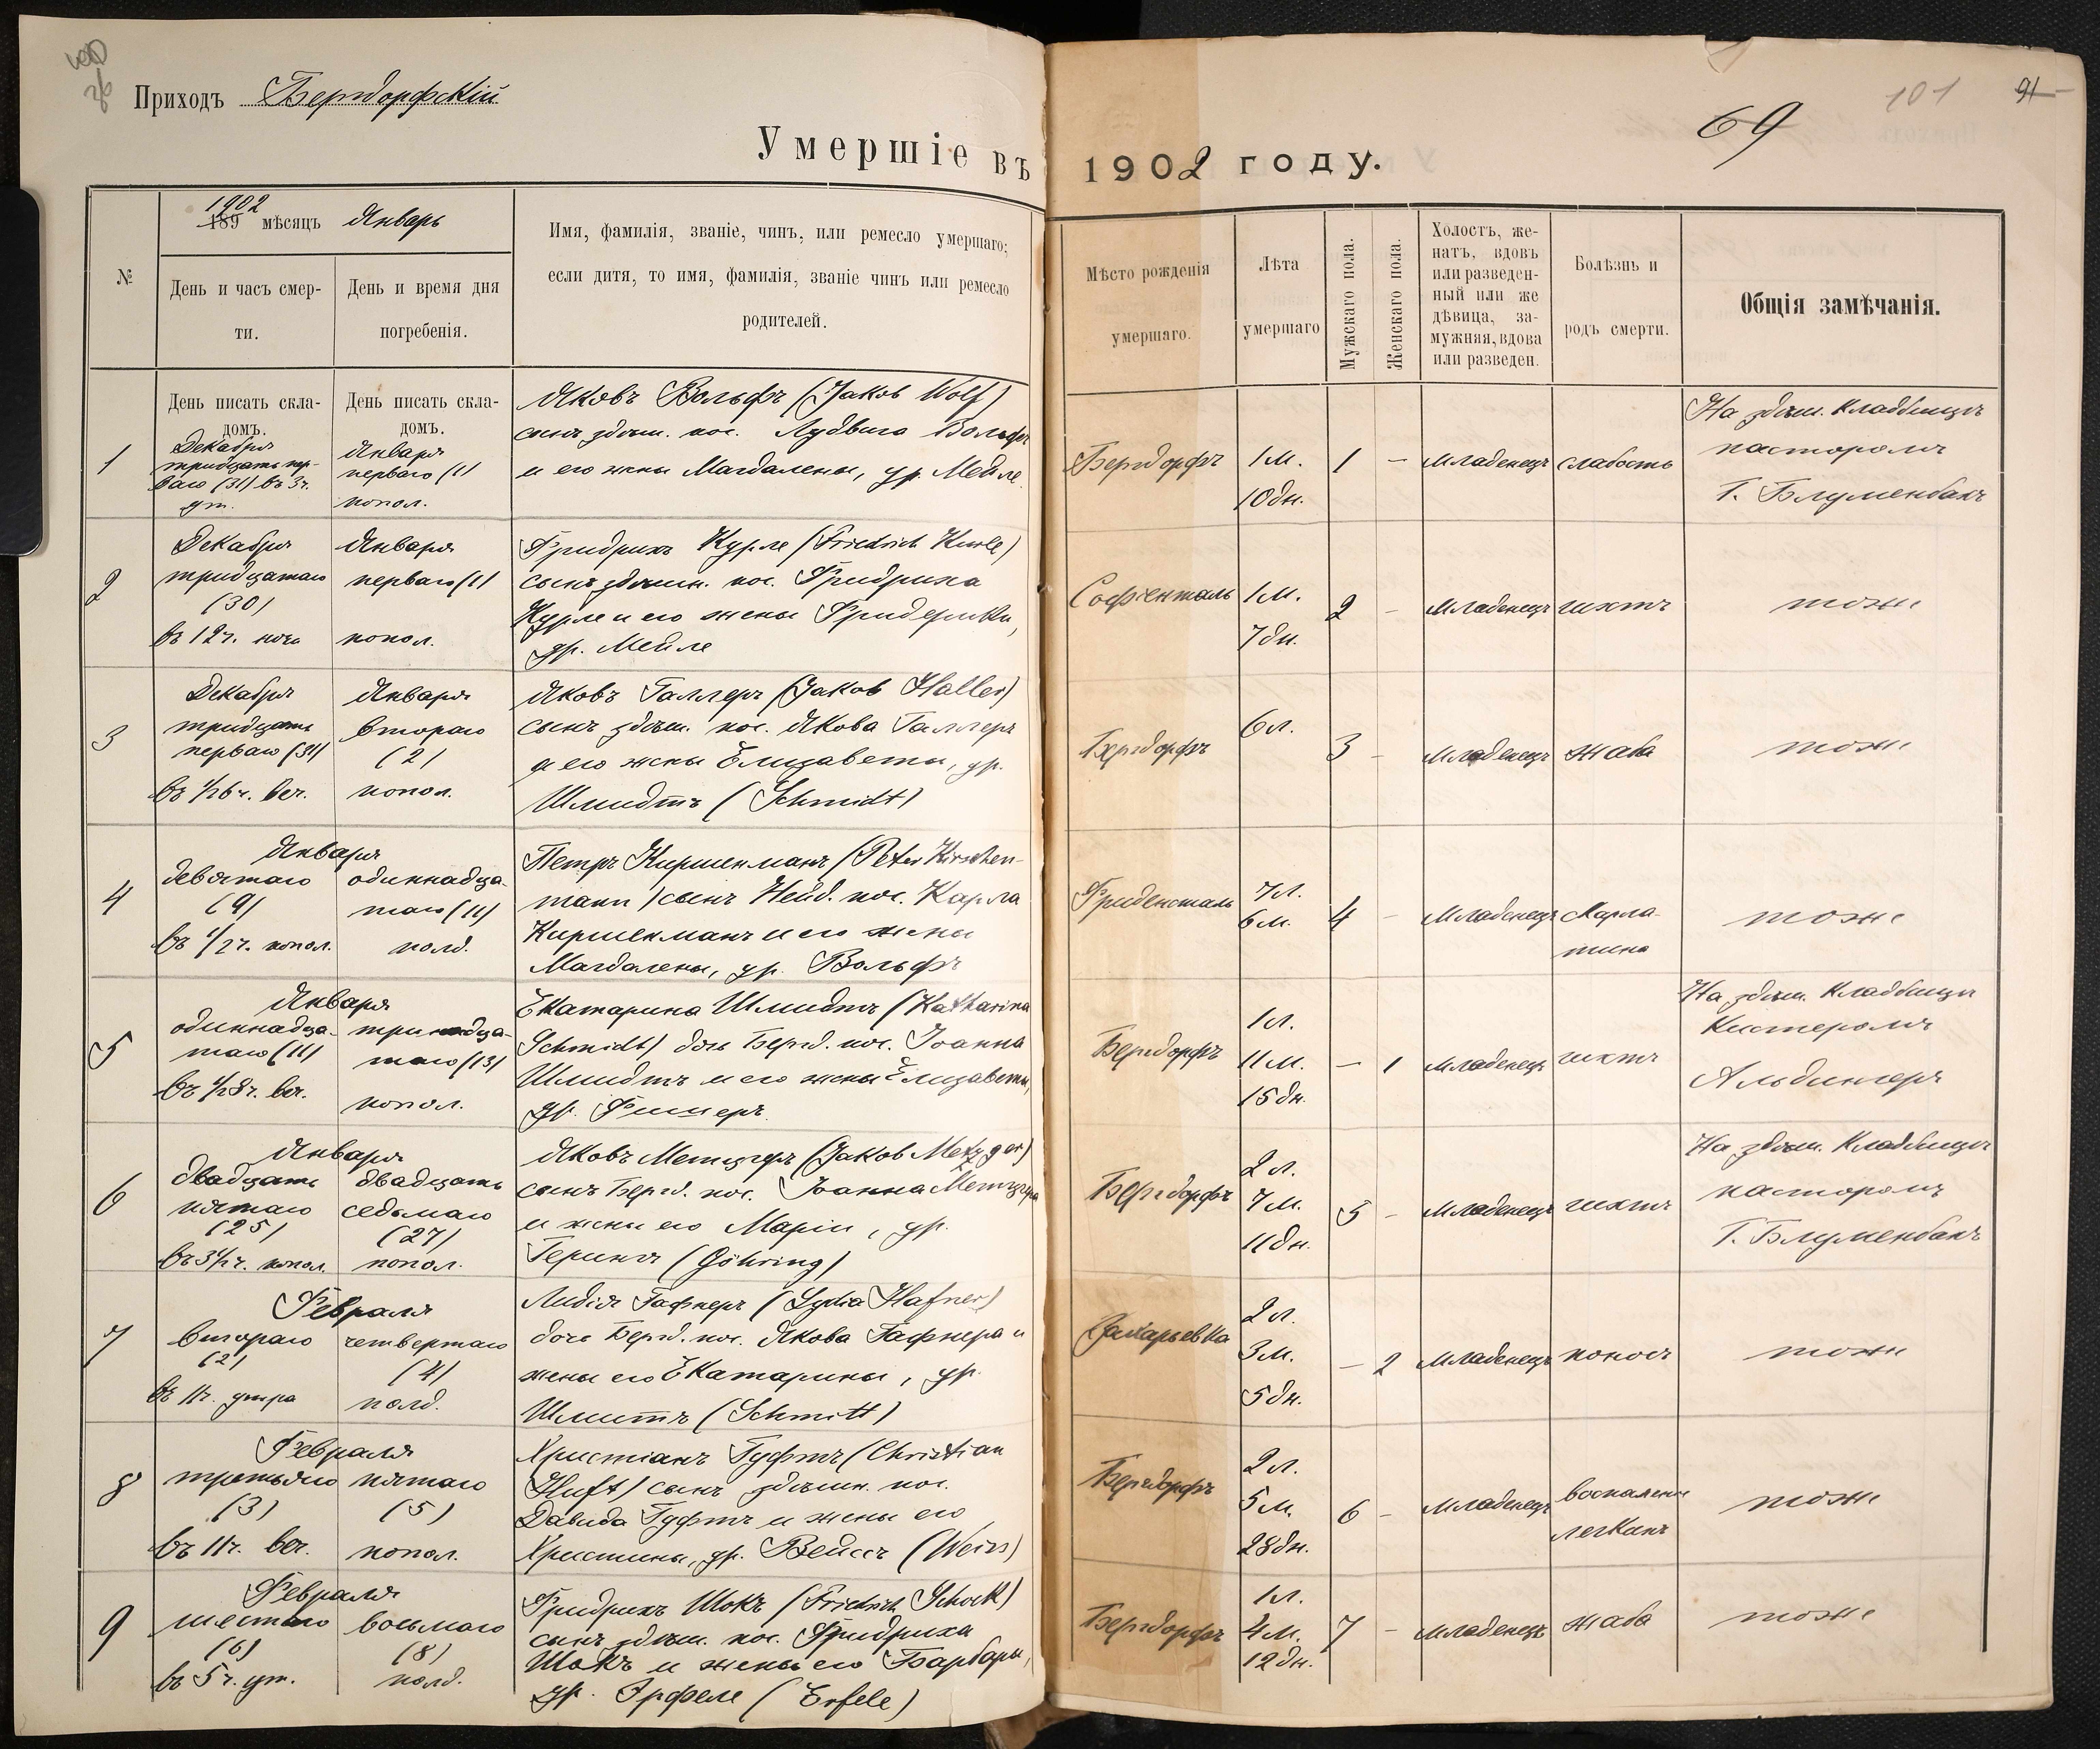 Приходъ Бергдорфскій
69
101
91
Умершіе въ 1902 году.
№
1902
189 мѣсяцъ Январь
День и часъ смер-
ти.
День и время дня
погребенія.
Имя, фамилія, званіе, чинъ, или ремесло умершаго;
если дитя, то имя, фамилія, званіе чинъ или ремесло
родителей.
Мѣсто рожденія
умершаго.
Лѣта
умершаго
Мужскаго пола.
Женскаго пола.
Холостъ, же-
натъ, вдовъ
или разведен-
ный или же
дѣвица, за-
мужняя, вдова
или разведен.
Болѣзнь и
родъ смерти.
Общія замѣчанія.
День писать скла-
домъ.
День писать скла-
домъ.
1
Декабря
тридцать пер-
ваго (31) въ 3 ч.
ут.
Января
перваго (1)
попол.
Яковъ Вольфъ (Jakob Wolf)
сынъ здѣш. пос. Лудвига Вольфъ
и его жены Магдалены, ур. Мейле
Бергдорфъ
1 м.
10 дн.
1
—
младенецъ
слабость
На здѣш. кладбищѣ
пасторомъ
Г. Блуменбахъ
2
Декабря
тридцатаго
(30)
въ 12 ч. ночи
Января
перваго (1)
попол.
Фридрихъ Курле (Friedrich Kurle)
сынъ здѣшн. пос. Фридриха
Курле и его жены Фридерики,
ур. Мейле
Софіенталь
1 м.
7 дн.
2
–
младенецъ
гихтъ
тоже
3
Декабря
тридцать
перваго (31)
въ 1/2 6 ч. веч.
Января
втораго
(2)
попол.
Яковъ Галлеръ (Jakob Haller)
сынъ здѣш. пос. Якова Галлеръ
и его жены Елизаветы, ур.
Шмидтъ (Schmidt)
Бергдорфъ
6 л.
3
–
младенецъ
жаба
тоже
4
Января
девятаго
(9)
въ 1/2 ч. попол.
одиннадца-
таго (11)
полд.
Петръ Киршенманъ (Peter Kirschen-
mann) сынъ Нейд. пос. Карла
Киршенманъ и его жены
Магдалены, ур. Вольфъ
Фриденсталь
7 л.
6 м.
4
–
младенецъ
скарла-
тина
тоже
5
Января
одиннадца-
таго (11)
въ 1/2 8 ч. веч.
тринадца-
таго (13)
попол.
Екатарина Шмидтъ (Katharina
Schmidt) дочь Бергд. пос. Іоанна
Шмидтъ и его жены Елизаветы,
ур. Фишеръ.
Бергдорфъ
1 л.
11 м.
15 дн.
—
1
младенецъ
гихтъ
На здѣш. кладбищѣ
кистеромъ
Альдингеръ
6
Января
двадцать
пятаго
(25)
въ 3 1/2 ч. попол.
двадцать
седьмаго
(27)
попол.
Яковъ Мецгеръ (Jakob Metzger)
сынъ Бергд. пос. Іоанна Мецгера
и жены его Маріи, ур.
Герингъ (Göhring)
Бергдорфъ
2 л.
7 м.
11 дн.
5
–
младенецъ
гихтъ
На здѣш. кладбищѣ
пасторомъ
Г. Блуменбахъ
7
Февраля
втораго
(2)
въ 11 ч. утра
четвертаго
(4)
полд.
Лидія Гафнеръ (Lydia Hafner)
дочь Бергд. пос. Якова Гафнера и
жены его Екатарины, ур.
Шмиттъ (Schmitt)
Захарьевка
2 л.
3 м.
5 дн.
—
2
младенецъ
поносъ
тоже
8
Февраля
третьяго
(3)
въ 11 ч. веч.
пятаго
(5)
попол.
Христіанъ Гуфтъ (Christian
Huft) сынъ здѣшн. пос.
Давида Гуфтъ и жены его
Христины, ур. Вейссъ (Weiss)
Бергдорфъ
2 л.
5 м.
28 дн.
6
–
младенецъ
воспаленіе
легкихъ
тоже
9
Февраля
шестаго
(6)
въ 5 ч. ут.
восьмаго
(8)
полд.
Фридрихъ Шокъ (Friedrich Schock)
сынъ здѣш. пос. Фридриха
Шокъ и жены его Барбары,
ур. Эрфеле (Erfele)
Бергдорфъ
1 л.
4 м.
12 дн.
7
–
младенецъ
жаба
тоже